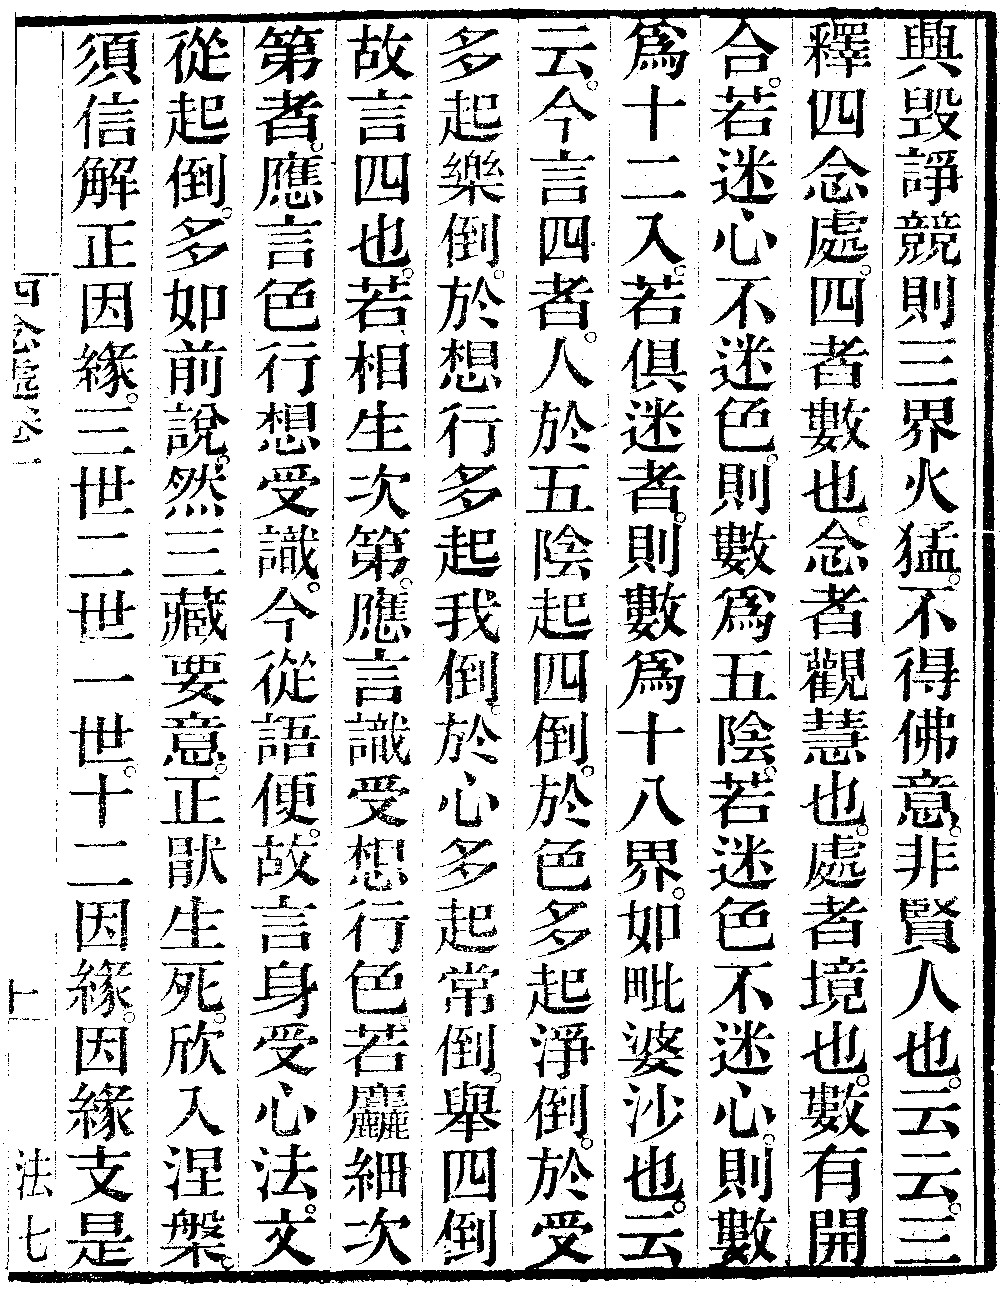 興毀諍競則三界火猛。不得佛意。非賢人也。云云。三
釋四念處。四者。數也。念者觀慧也。處者境也。數有開
合。若迷心不迷色。則數為五陰。若迷色不迷心。則數
為十二入。若俱迷者。則數為十八界。如毗婆沙也。云
云。今言四者。人於五陰起四倒。於色多起淨倒。於受
多起樂倒。於想行多起我倒。於心多起常倒。舉四倒
故言四也。若相生次第。應言識受想行色若麤細次
第者。應言色行想受識。今從語便。故言身受心法。文
從起倒。多如前說。然三藏要意。正猒生死。欣入涅槃。
須信解正因緣。三世二世一世。十二因緣。因緣支是
四念處卷一 上 法七